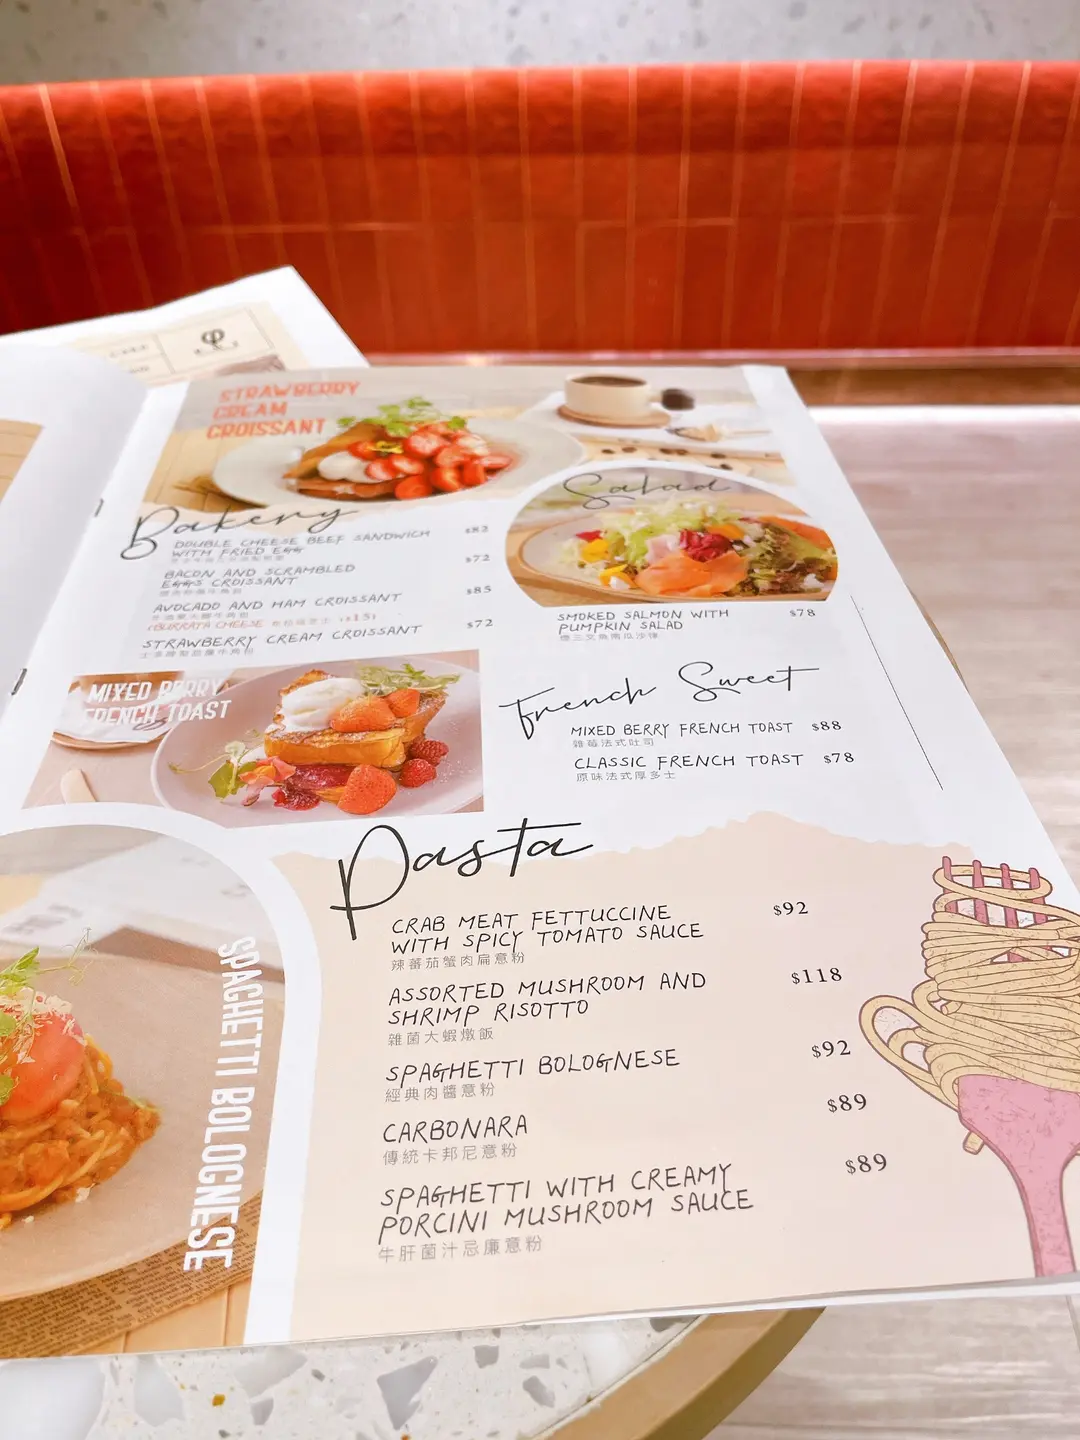 STRAWBERRY
CREAM
CROISSANT
Bakery
DOUBLE CHEESE BEEF SANDWICH $82
WITH FRIED EGG
BACON AND SCRAMBLED $72
EGGS CROISSANT
AVOCADO AND HAM CROISSANT $85
+BURRATA CHEESE
STRAWBERRY CREAM CROISSANT $72
Salad
SMOKED SALMON WITH $78
PUMPKIN SALAD
煙三文魚南瓜沙律
MIXED BERRY
FRENCH TOAST
French Sweet
MIXED BERRY FRENCH TOAST $88
雜莓法式吐司
CLASSIC FRENCH TOAST $78
原味法式厚多士
SPAGHETTI BOLOGNESE
Pasta
CRAB MEAT FETTUCCINE $92
WITH SPICY TOMATO SAUCE
辣蕃茄蟹肉扁意粉
ASSORTED MUSHROOM AND $118
SHRIMP RISOTTO
雜菌大蝦燉飯
SPAGHETTI BOLOGNESE $92
經典肉醬意粉
CARBONARA $89
傳統卡邦尼意粉
SPAGHETTI WITH CREAMY $89
PORCINI MUSHROOM SAUCE
牛肝菌汁忌廉意粉